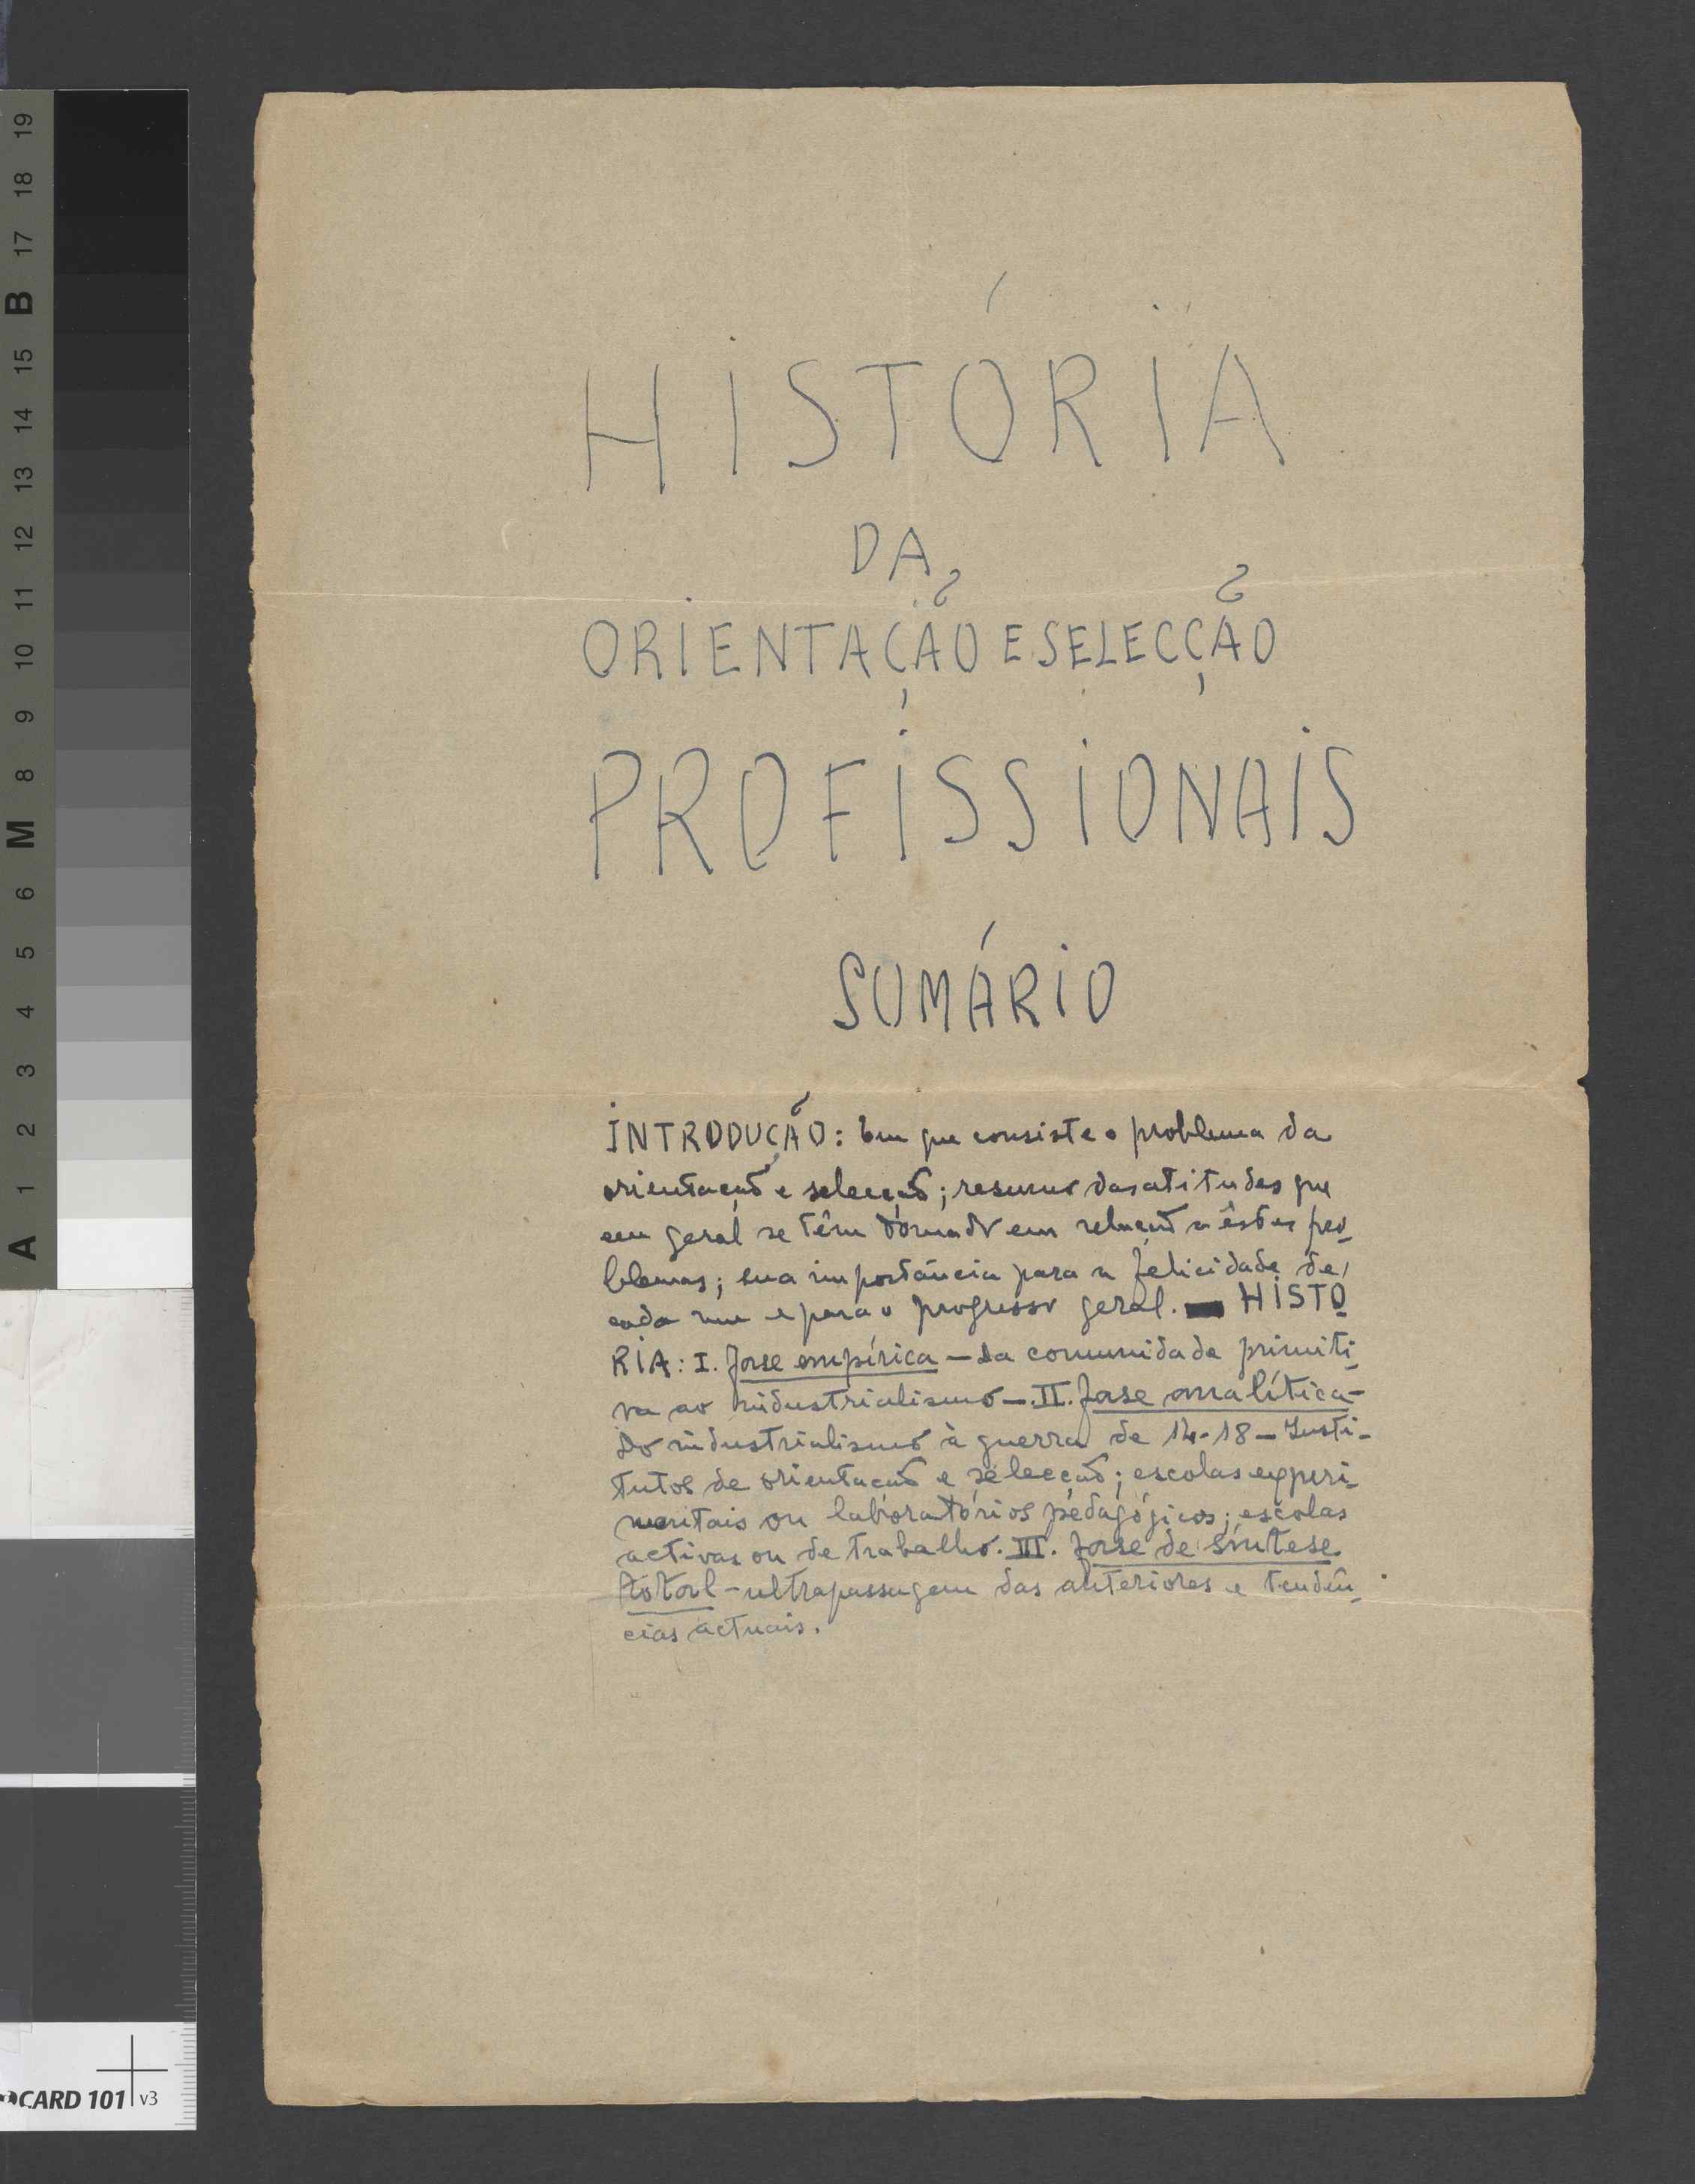 HISTÓRIA
DA
ORIENTAÇÃO E SELECÇÃO
PROFISSIONAIS
SUMÁRIO
INTRODUÇÃO: Em que consiste o problema da
orientação e selecção; resumo das atitudes que
em geral se têm tomado em relação a êstes pro-
blemas; sua importância para a felicidade de
cada um e para o progresso geral. — HISTÓ
RIA: I. fase empírica — Da comunidade primiti-
va ao industrialismo —. II. fase analítica —
Do industrialismo à guerra de 14-18 — Insti-
tutos de orientação e selecção; escolas experi-
mentais ou laboratórios pedagógicos; escolas
activas ou de trabalho. III. fase de síntese
total - ultrapassagem das anteriores e tendên-
cias actuais.
A 1 2 3 4 5 6 M 8 9 10 11 12 13 14 15 B 17 18 19
CARD 101 v3